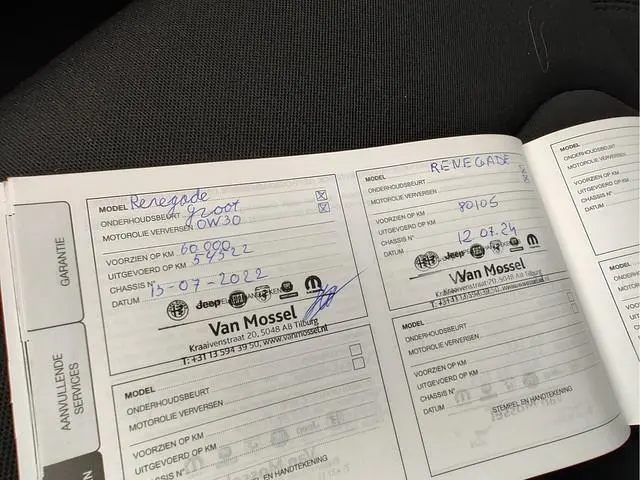 GARANTIE
AANVULLENDE
SERVICES
MODEL Renegade
ONDERHOUDSBEURT groot
MOTOROLIE VERVERSEN 0W30
VOORZIEN OP KM 60 000
UITGEVOERD OP KM 54522
CHASSIS N°
DATUM 15-07-2022
Jeep
Van Mossel
Kraaivenstraat 20, 5048 AB Tilburg
T: +31 13 594 39 50, www.vanmossel.nl
MODEL
ONDERHOUDSBEURT
MOTOROLIE VERVERSEN
VOORZIEN OP KM
UITGEVOERD OP KM
CHASSIS N°
STEMPEL EN HANDTEKENING
MODEL RENEGADE
ONDERHOUDSBEURT
MOTOROLIE VERVERSEN
VOORZIEN OP KM
UITGEVOERD OP KM 80105
CHASSIS N°
DATUM 12.07.24
Jeep
Van Mossel
Kraaivenstraat 20, 5048 AB Tilburg
T: +31 13 594 39 50, www.vanmossel.nl
ONDERHOUDSBEURT
MOTOROLIE VERVERSEN
VOORZIEN OP KM
UITGEVOERD OP KM
CHASSIS N°
DATUM
STEMPEL EN HANDTEKENING
MODEL
ONDERHOUDSBEURT
MOTOROLIE VERV
VOORZIEN OP KM
UITGEVOERD OP
CHASSIS N°
DATUM
MODEL
ONDERHOUDS
MOTOROLIE